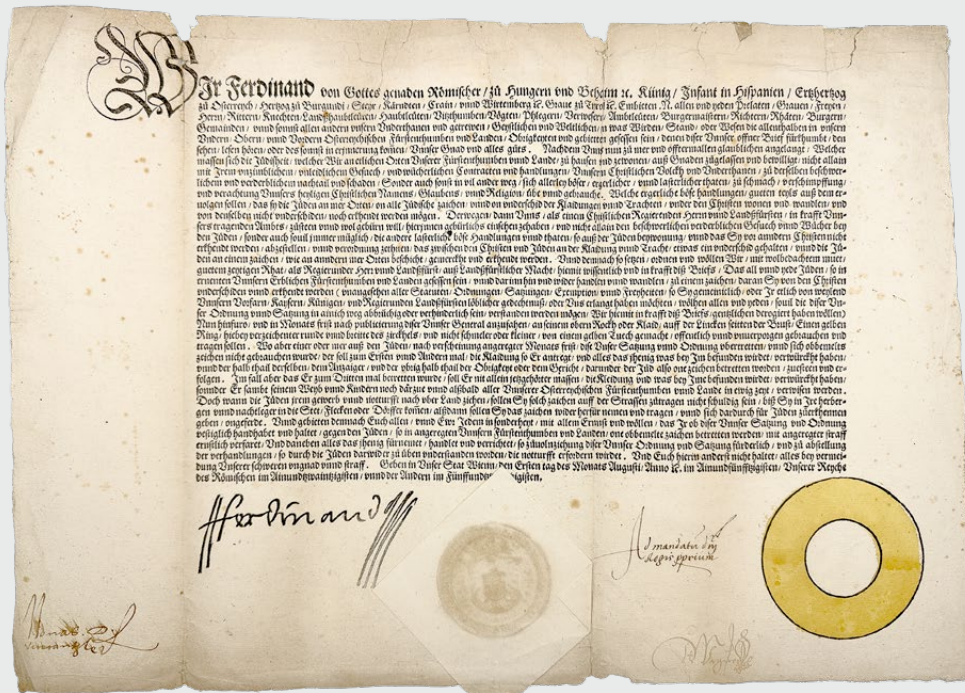 WIr Ferdinand von Gottes genaden Römischer / zů Hungern vnd Beheim ꝛc. Künig / Infant in Hispanien / Ertzhertzog
zů Osterreich / Hertzog zů Burgundi / Steyr / Kärndten / Crain / vnnd Wirtemberg ꝛc. Graue zů Tyrol ꝛc. Embietten N. allen vnd yeden Prelaten / Grauen / Freyen /
Herrn / Rittern / Knechten / Landßhaubtleüten / Haubtleüten / Vitzthumben / Vögten / Phlegern / Verwesern / Ambtleüten / Burgermaistern / Richtern / Rhäten / Burgern /
Gemainden / vnnd sonst allen andern vnsern Vnderthanen vnd getrewen / Geystlichen vnd Weltlichen / in was Wirden / Stand / oder Wesen die allenthalben in vnsern
Vndern / Obern / vnnd Vordern Osterreichischen Fürstenthumben vnd Landen / Obrigkeyten vnd gebietten gesessen sein / denen diser Vnser offner Brief fürkhumbt / den
sehen / lesen hören / oder des sonnst in erinnerung komen / Vnnser Gnad vnd alles gůts. Nachdem Vnns nun zů mer vnd offternmalen glaublichen angelangt / Welcher
massen sich die Jüdischeit / welcher Wir an etlichen Orten Vnserer Fürstenthumben vnnd Lande / zů hausen vnd zewonen / auß Gnaden zůgelassen vnd bewilligt / nicht allain
mit Irem vnzimblichem / vnleidlichem Gesuech / vnd wůcherlichen Contracten vnd handlungen / Vnnserm Christlichen Volckh vnd Vnderthanen / zů derselben beschwer-
lichem vnd verderblichem nachtail vnd schaden / Sonder auch sonst in vil ander weg / sich allerley böser / ergerlicher / vnnd lasterlicher thaten / zů schmach / verschimpffung /
vnd verachtung Vnnsers heyligen Christlichen Namens / Glaubens / vnnd Religion / übt vnnd gebraucht. Welche ergerliche böse handlungen / guetten theils auß dem er-
uolgen sollen / das sy die Jüden an mer Orten / on alle Jüdische zaichen / vnnd on vnderschid der Klaidungen vnnd Trachten / vnder den Christen wonen vnd wandlen / vnd
von denselben nicht vnderschiden / noch erkhendt werden mögen. Derwegen dann Vnns / als einem Christlichen Regierenden Herrn vnnd Landßfürsten / in krafft Vnn-
sers tragenden Ambts / zůsteen vnnd wol gebürn will / hierinnen gebürlichs einsehen zehaben / vnd nicht allain den beschwerlichen verderblichen Gesuech vnnd Wůcher bey
den Jüden / sonder auch souil immer müglich / die andern lasterlichen böse Handlungen vnnd thaten / so auß der Jüden beywonung / vnnd das Sy vor anndern Christen nicht
erkhendt werden / abzestellen / vnnd verordnung zethůn / das zwischen den Christen vnd Jüden an der Klaidung vnnd Tracht / etwas ein vnderschid gehalten / vnnd die Jü-
den an einem zaichen / wie an anndern mer Orten beschicht / gemerckht vnd erkhendt werde. Vnnd demnach so setzen / ordnen vnd wöllen Wir / mit wolbedachtem muet /
guetem zeytigen Rhat / als Regierunder Herr vnnd Landßfürst / auß Landßfürstlicher Macht / hiemit wissentlich vnd in krafft diß Briefs / Das all vnnd yede Jüden / so in
ernenten Vnnsern Erblichen Fürstenthumben vnd Landen gesessen sein / vnnd darinn hin vnd wider handlen vnnd wandlen / zů einem zaichen / daran Sy von den Christen
vnderschiden vnnd erkhendt werden (vnangesehen aller Statuten / Ordnungen / Satzungen / Exemption / vnnd Freyheiten / so Sy gemeinlich / oder Ir etlich von weylend
Vnnsern Vorfarn / Kaysern / Künigen / vnd Regierunden Landßfürsten löblicher gedechtnuß / oder Vns erlangt haben möchten / wöllhen allen vnd yeden / souil die diser Vn-
ser Ordnung vnnd Satzung in ainich weg abbrüchig oder verhinderlich sein / verstanden werden mögen / Wir hiemit in krafft diß Briefs / gentzlichen derogiert haben wöllen)
Nun hinfuro / vnd in Monats frist nach publicierung diser Vnnser General anzůfahen / an seinem obern Rockh oder Klaid / auff der Lincken seitten der Brust / Einen gelben
Ring / hiebey verzaichenter runde vnnd braite des zirckhels / vnd nicht schmeler oder kleiner / von einem gelben Tuech gemacht / offentlich vnnd vnuerporgen gebrauchen vnd
tragen sollen. Wo aber einer oder mer auß den Jüden / nach verscheinung angeregter Monats frist / dise Vnser Satzung vnnd Ordnung übertretten / vnnd sich obbemelts
zaichen nicht gebrauchen wurde / der soll zum Ersten vnd Andern mal / die Klaidung so Er antregt / vnd alles das jhenig was bey Im befunden wirdet / verwürckt haben /
vnnd der halb thail derselben / dem Anzaiger / vnd der übrig halb thail der Obrigkeyt oder dem Gericht / darunder der Jüd also one zaichen betretten worden / zuesteen vnd er-
folgen. Im fall aber das Er zum Dritten mal betretten wurde / soll Er nit allein jetzgehörter massen / die Kleidung vnd was bey Ime befunden wirdet / verwürckt haben /
sonnder Er sambt seinem Weyb vnnd Kindern noch darzůe vnnd alßbald aller Vnnserer Osterreichischen Fürstenthumben vnnd Lande in ewig zeyt / verwisen werden.
Doch wann die Jüden jrem gewerb vnnd notturfft nach über Land ziehen / sollen Sy solch zaichen auff der Strassen zůtragen nicht schuldig sein / biß Sy in Ire herber-
gen vnnd nachtleger in die Stet / Flecken oder Dörffer komen / alßdann sollen Sy das zaichen wider herfür nemen vnd tragen / vnnd sich dardurch für Jüden zůerkhennen
geben / vngeferde. Vnnd gebietten demnach Euch allen / vnnd Ewr Jedem in sonderheyt / mit allem Ernst vnd wöllen / das Ir ob diser Vnnser Satzung vnd Ordnung
vestiglich handhabet vnd haltet / gegen den Jüden / so in angeregten Vnnsern Fürstenthumben vnd Landen / one obbemelt zaichen betretten werden / mit angeregter straff
ernstlich verfaret / Vnd daneben alles das jhenig fürnemet / handlet vnd verrichtet / so zůuolziehung diser Vnnser Ordnung vnd Satzung fürderlich / vnd zů abstellung
der verhandlungen / so durch die Jüden darwider zů üben vnderstanden wurden / die notturfft erfordern wirdet. Vnd Euch hierin anderst nicht haltet / alles bey vermei-
dung Vnserer schweren vngnad vnnd straff. Geben in Vnser Stat Wienn / den Ersten tag des Monats Augusti / Anno ꝛc. im Ainundfünfftzigisten / Vnserer Reyche
des Römischen im Ainundtzwaintzigisten / vnnd der Andern im Fünffundzwaintzigisten.
Ferdinand
Ad mandatu dni
Regis pprium